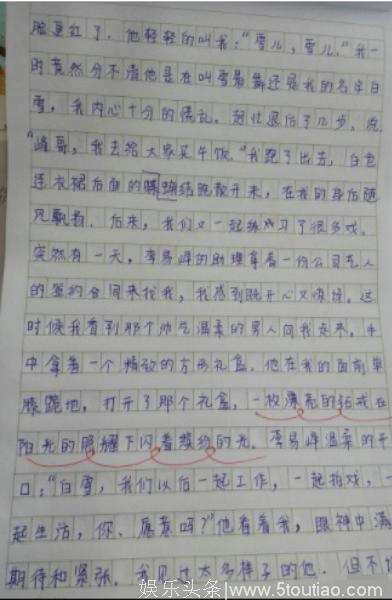 脸更红了，他轻轻的叫我："雪儿，雪儿。"我一
时竟然分不清他是在叫雪舞还是我的名字白
雪，我内心十分的慌乱。赶忙退后了几步，说
"峰哥，我去给大家买午饭。"我跑了出去，白色
连衣裙后面的蝴蝶结跑散开来，在我的身后随
风飘着。后来，我们又一起练习了很多戏。
突然有一天，李易峰的助理拿着一份公司艺人
的签约合同来找我，我感到既开心又惊
时候我看到那个帅气温柔的男人向我走来，手
中拿着一个精致的方形礼盒。他在我的面前单
膝跪地，打开了那个礼盒，一枚漂亮的钻戒在
阳光的照耀下闪着缤纷的光。李易峰温柔的开
口："白雪，我们以后一起工作，一起拍戏，一
起生活，你、愿意吗？"他看着我，眼神中满
期待和紧张。我见过太多样子的他，但不
娱乐头条 www.5toutiao.com